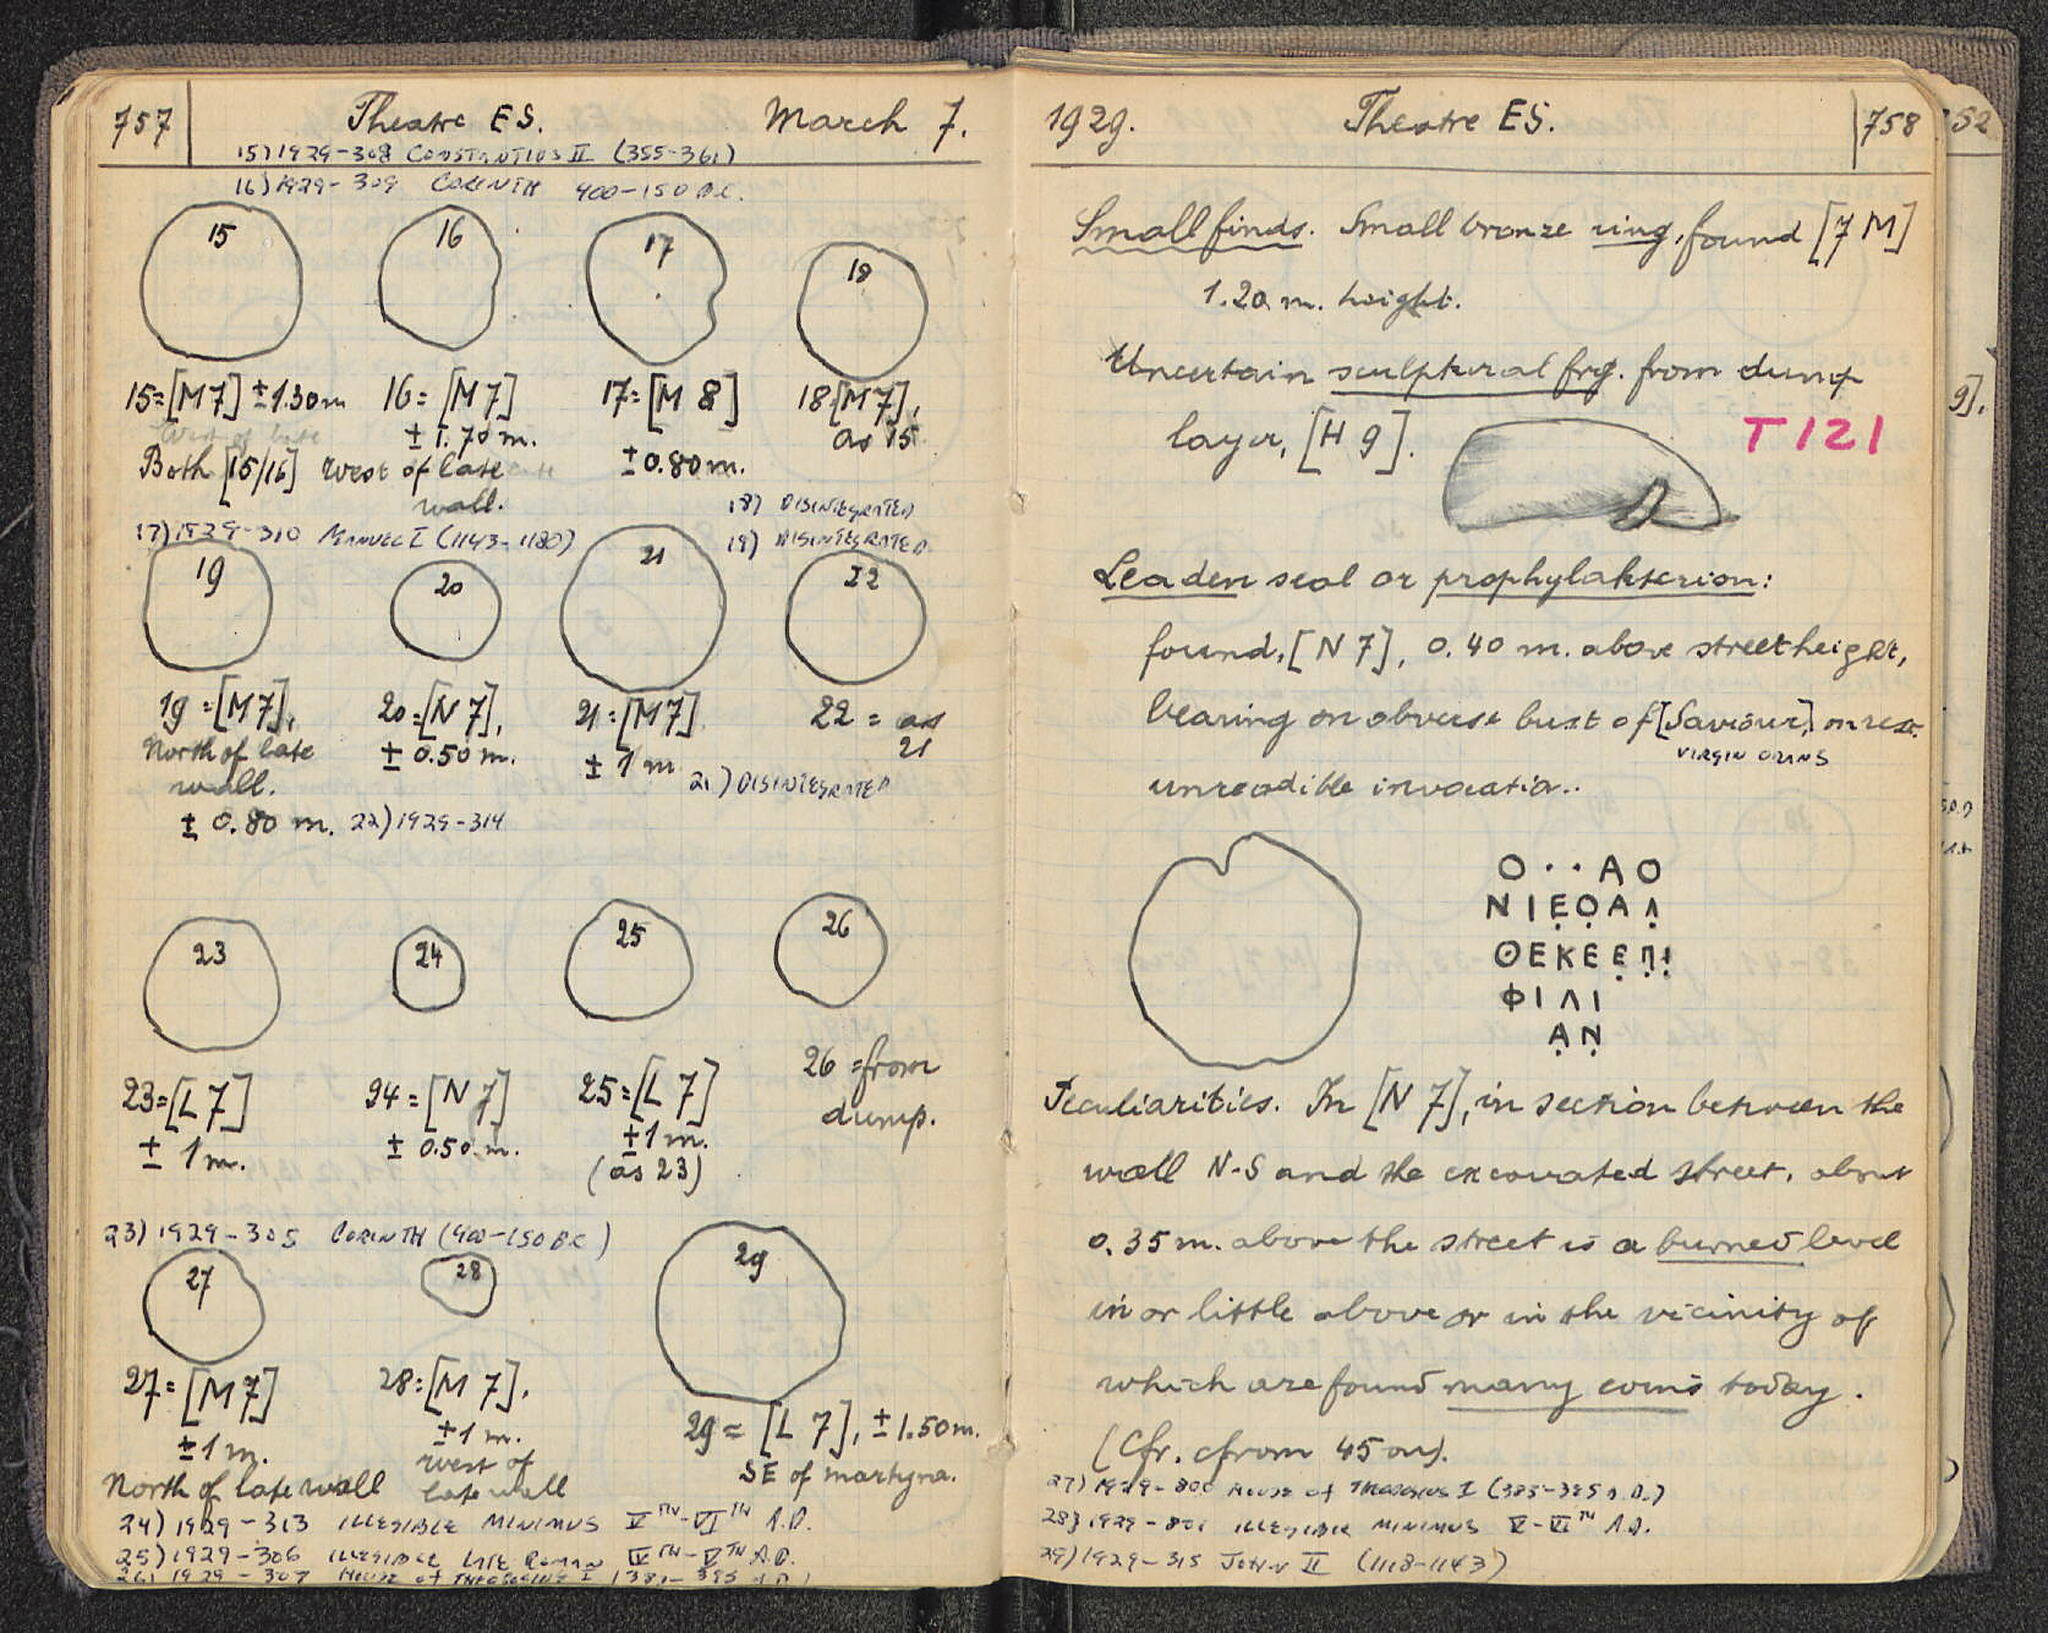 757 Theatre ES. March 7.
15) 1929-308 CONSTANTIUS II (355-361)
16) 1929-309 CORINTH 400-150 B.C.
15 16 17 18
15=[M7] ±1.30m 16=[M7] 17=[M 8] 18[M7],
West of late ± 1.70 m. ±0.80m. as 15
Both [15/16] west of late
wall.
18) DISINTEGRATED
17) 1929-310 MANUEL I (1143-1180) 19) DISINTEGRATED
19 20 21 22
19=[M7], 20=[N7], 21=[M7] 22= as
North of late ± 0.50 m. ± 1 m 21
wall. 21) DISINTEGRATED
± 0.80 m. 22) 1929-314
23 24 25 26
23=[L7] 24=[N7] 25=[L7] 26=from
± 1m. ± 0.50 m. ±1m. dump.
(as 23)
23) 1929-305 CORINTH (400-150 BC)
27 28 29
27=[M7] 28=[M 7], 29=[L 7], ±1.50m.
±1m. ±1 m. SE of martyra.
North of late wall west of
late wall
24) 1929-313 ILLEGIBLE MINIMUS VTH-VITH A.D.
25) 1929-306 ILLEGIBLE LATE ROMAN IVTH-VTH A.D.
26) 1929-307 HOUSE OF THEODOSIUS I
1929. Theatre ES. 758
52
Small finds. Small bronze ring, found [7 M]
1.20 m. height.
Uncertain sculptural frg. from dump
layer, [H 9]. T121
9].
Leaden seal or prophylakterion:
found, [N 7], 0.40 m. above streetheight,
bearing on obverse bust of [Saviour,] on rev.
VIRGIN ORANS
unreadible invocatio..
Ο··ΑΟ
ΝΙΕΟΑΛ
ΘΕΚΕΕΠΙ
ΦΙΛΙ
ΑΝ
Peculiarities. In [N 7], in section between the
wall N-S and the excavated street, about
0.35 m. above the street is a burned level
in or little above or in the vicinity of
which are found many coins today.
(Cfr. from 45 on).
27) 1929-800 HOUSE OF THEODOSIUS I
28) 1929-801 ILLEGIBLE MINIMUS V-VITH A.D.
29) 1929-315 JOHN II (1118-1143)